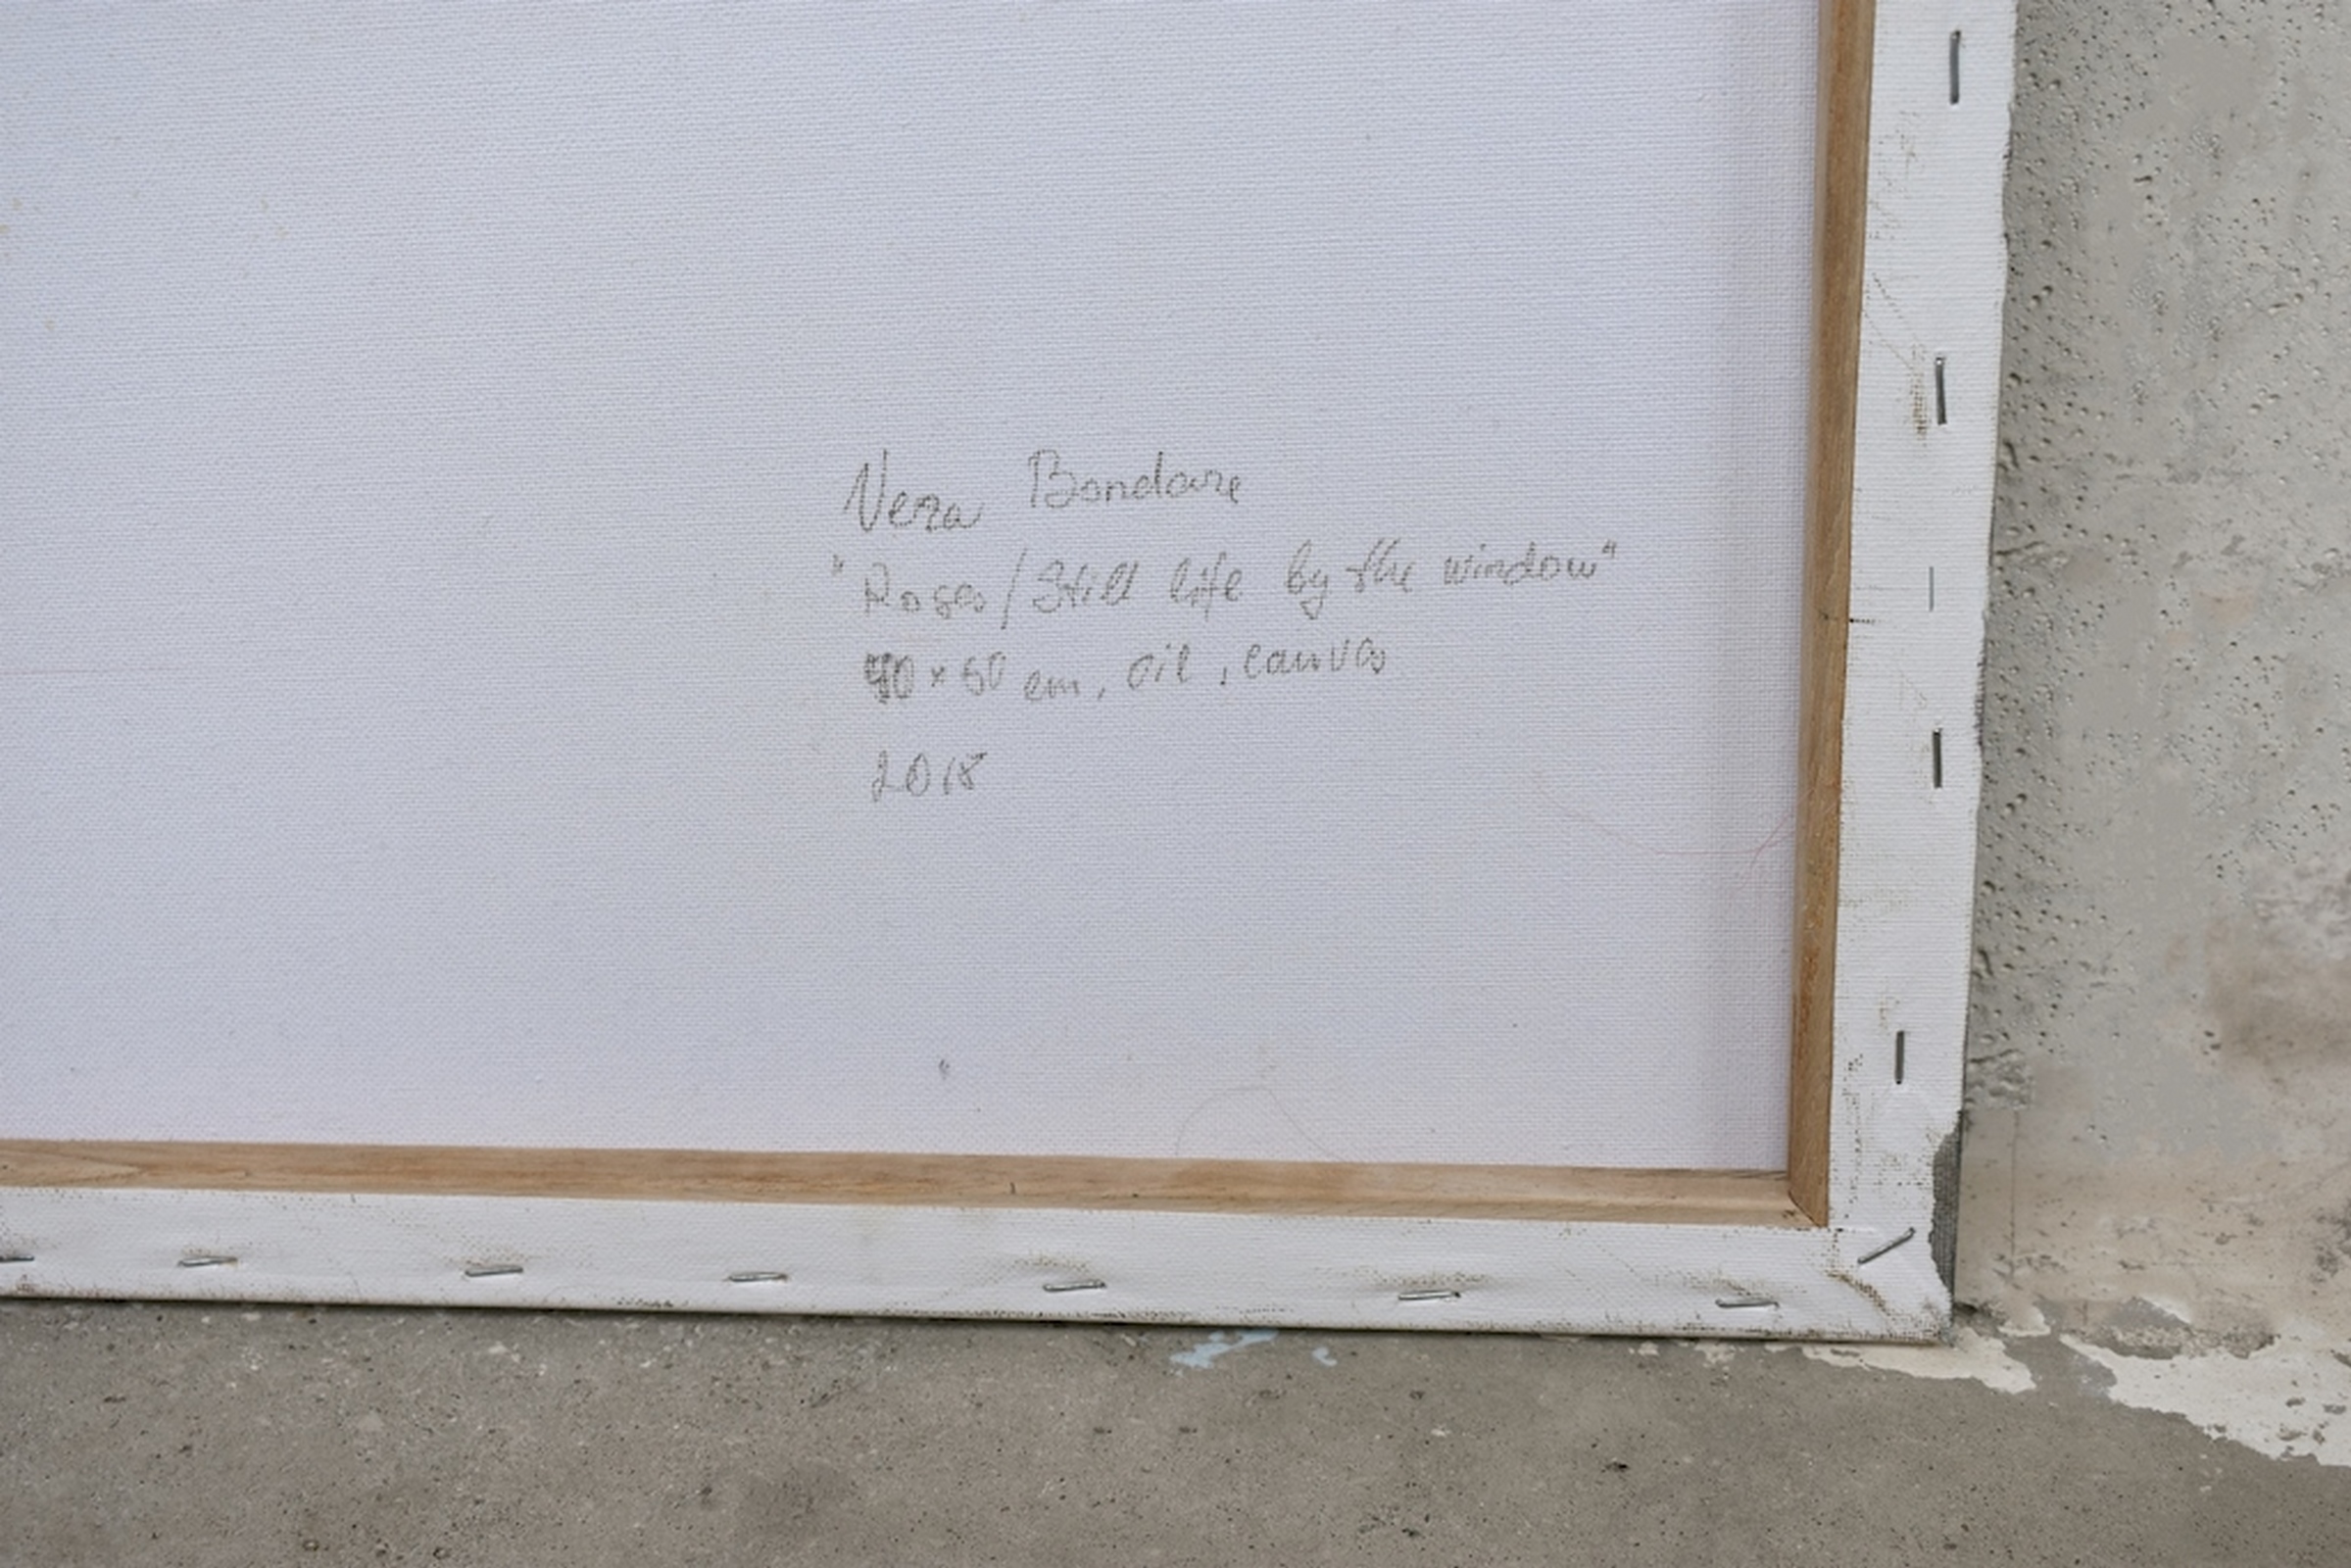 Vera Bondare
"Roses/Still life by the window"
40 × 50 cm, oil, canvas
2018